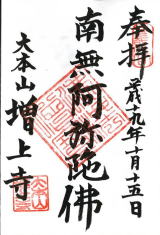 奉拝
平成九年十月十五日
南無阿弥陀佛
大本山
増上寺